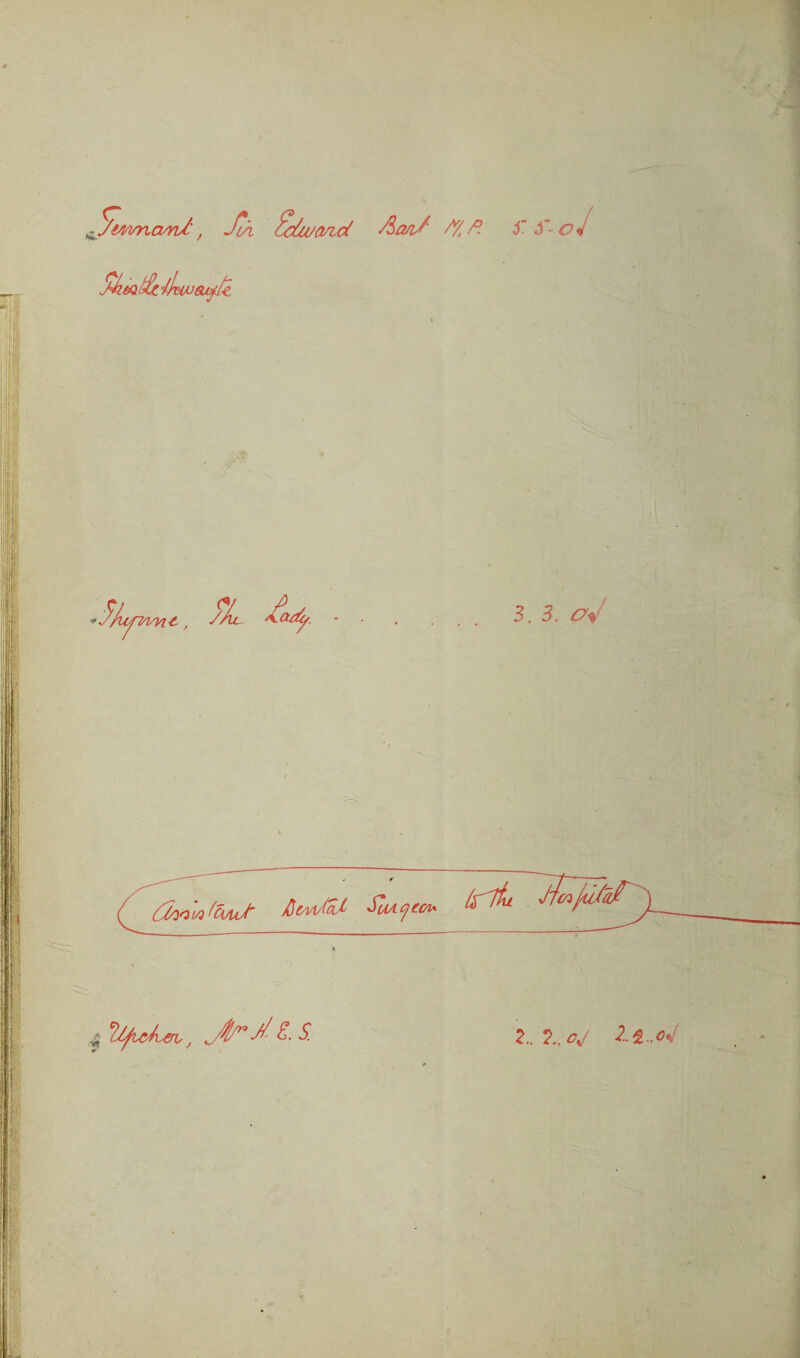 Tennant, Sir Edward Bart M.P. 5. 5. 0 √
Throckmorton
Thynne, The Lady. - - . . . . . 3. 3. 0 √
Assistant Dental Surgeon to the Hospital
Upcher, Mr H. E. S. 2.. 2.. 0 √ 2.. 2.. 0 √